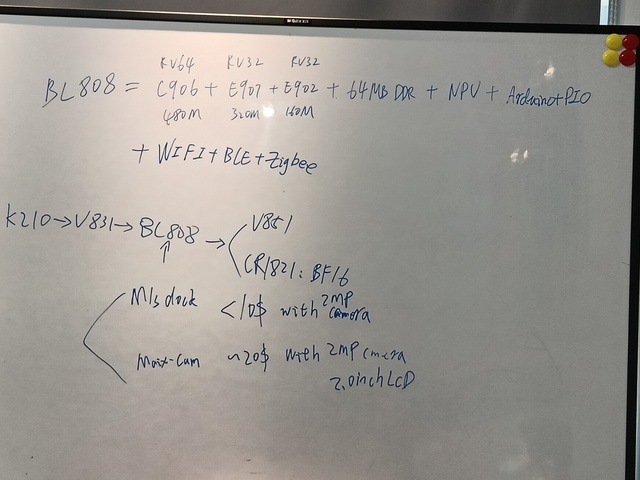 RV64 RV32 RV32
BL808 = C906 + E907 + E902 + 64MB DDR + NPU + Arduino+PIO
480M 320M 160M
+ WIFI + BLE + Zigbee
K210→V831→BL808→ V851
CR1821: BF16
↑
M1s dock <10$ with 2MP camera
Maix-Cam ~20$ with 2MP cmera
2.0inch LCD